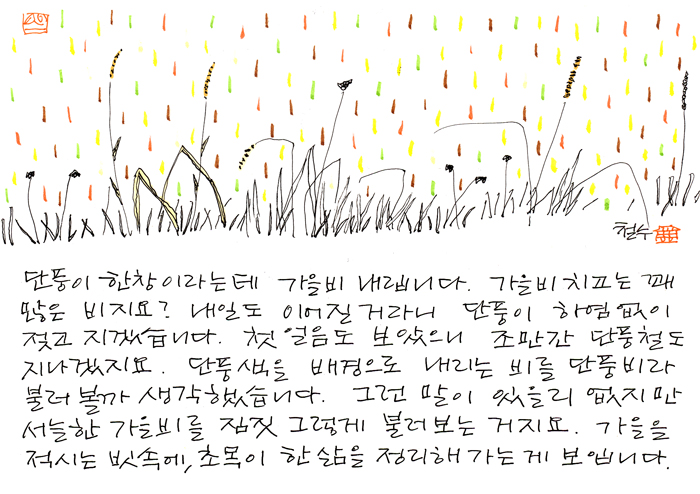 철수
단풍이 한창이라는데 가을비 내립니다. 가을비 치고는 꽤
많은 비지요? 내일도 이어질거라니 단풍이 하염없이
젖고 지겠습니다. 첫 얼음도 보았으니 조만간 단풍철도
지나겠지요. 단풍색을 배경으로 내리는 비를 단풍비라
불러볼까 생각했습니다. 그런 말이 있을리 없지만
서늘한 가을비를 짐짓 그렇게 불러보는 거지요. 가을을
적시는 빗속에, 초목이 한 삶을 정리해가는게 보입니다.